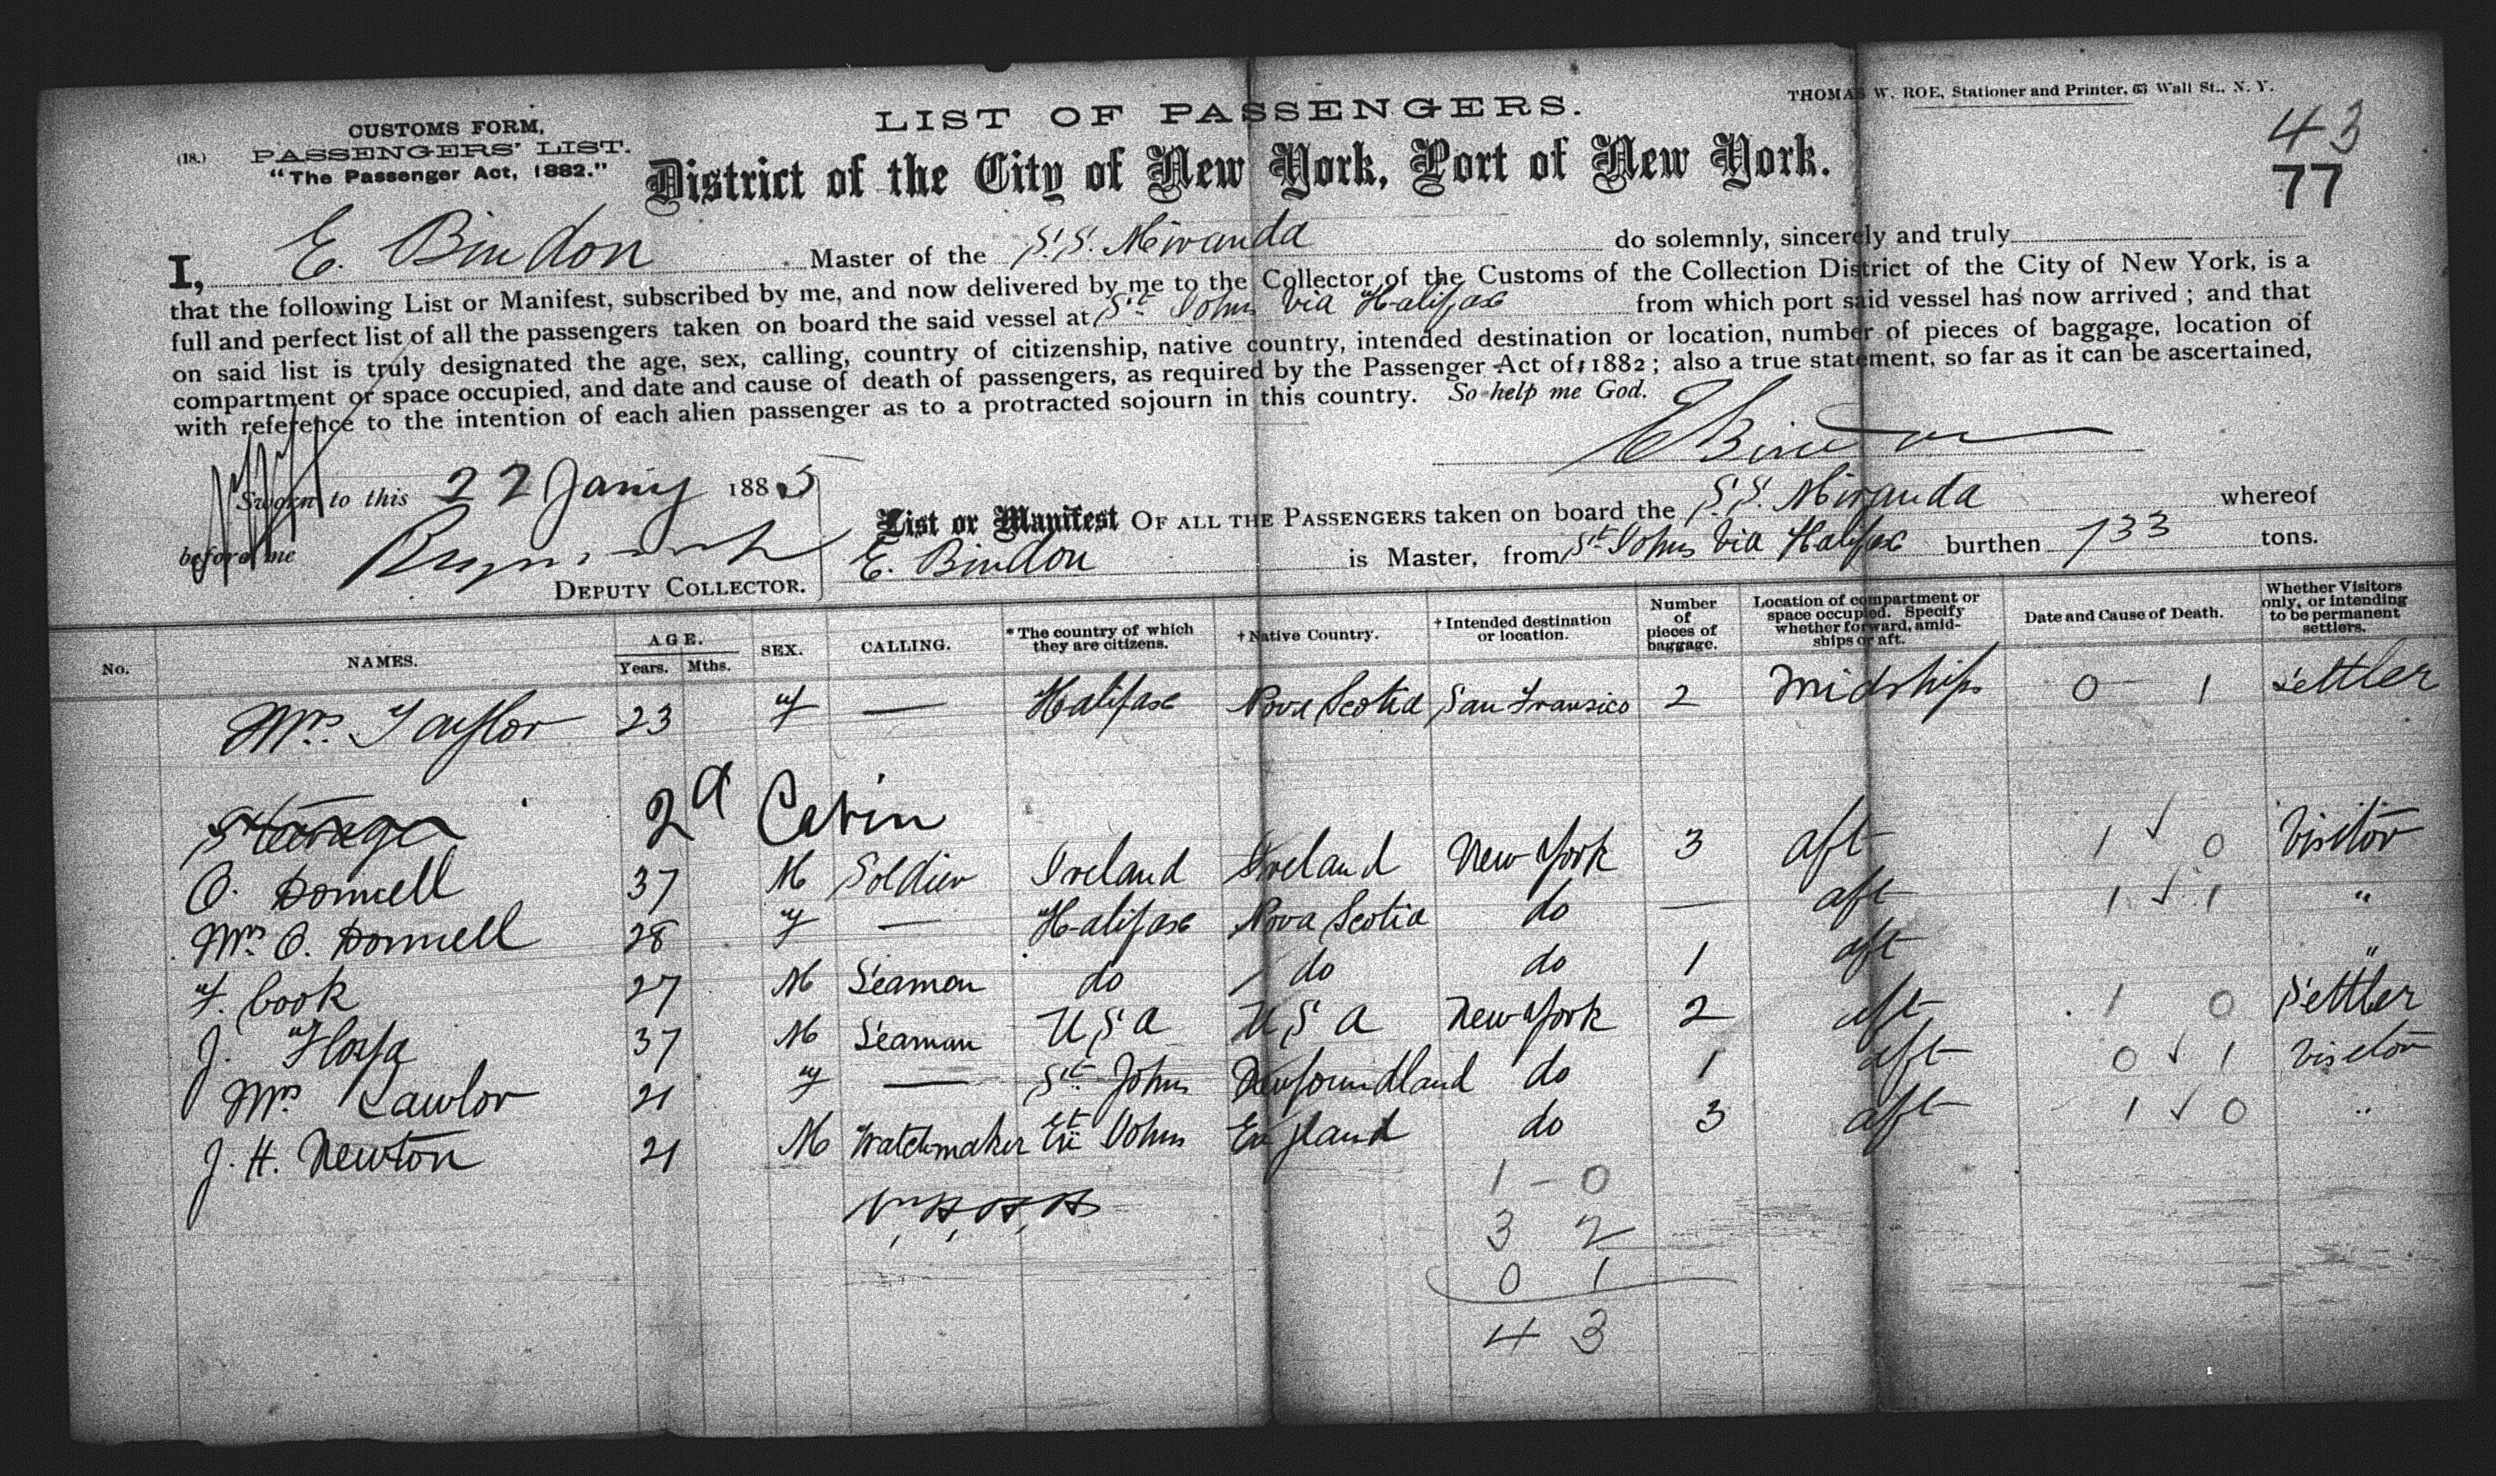 THOMAS W. ROE, Stationer and Printer, 63 Wall St., N. Y.
LIST OF PASSENGERS.
CUSTOMS FORM,
(18.) PASSENGERS' LIST.
"The Passenger Act, 1882."
District of the City of New York, Port of New York.
43
77
I, E. Bindon Master of the S.S. Miranda do solemnly, sincerely and truly
that the following List or Manifest, subscribed by me, and now delivered by me to the Collector of the Customs of the Collection District of the City of New York, is a
full and perfect list of all the passengers taken on board the said vessel at St Johns Via Halifax from which port said vessel has now arrived; and that
on said list is truly designated the age, sex, calling, country of citizenship, native country, intended destination or location, number of pieces of baggage, location of
compartment or space occupied, and date and cause of death of passengers, as required by the Passenger Act of 1882; also a true statement, so far as it can be ascertained,
with reference to the intention of each alien passenger as to a protracted sojourn in this country. So help me God.
E Bindon
Sworn to this 22 Jany 1885
before me
DEPUTY COLLECTOR.
List or Manifest OF ALL THE PASSENGERS taken on board the S.S. Miranda whereof
E. Bindon is Master, from St Johns Via Halifax burthen 733 tons.
No. NAMES. AGE. Years. Mths. SEX. CALLING. * The country of which they are citizens. † Native Country. † Intended destination or location. Number of pieces of baggage. Location of compartment or space occupied. Specify whether forward, amidships or aft. Date and Cause of Death. Whether Visitors only, or intending to be permanent settlers.
Mrs. Taylor 23 f — Halifax Nova Scotia San Fransico 2 Midships 0 — 1 Settler
Steerage 2d Cabin
O. Donnell 37 M Soldier Ireland Ireland New York 3 aft 1 ✓ 0 Visitor
Mrs. O. Donnell 28 f — Halifax Nova Scotia do — aft 1 ✓ 1 "
F. Cook 27 M Seaman do do do 1 aft "
J. 37 M Seaman U S A U S A New York 2 aft 1 0 Settler
Mrs Lawlor 21 f — St. Johns Newfoundland do 1 aft 0 ✓ 1 Visitor
J. H. Newton 21 M Watchmaker St Johns England do 3 aft 1 ✓ 0 "
1 - 0
3 2
0 1
4 3